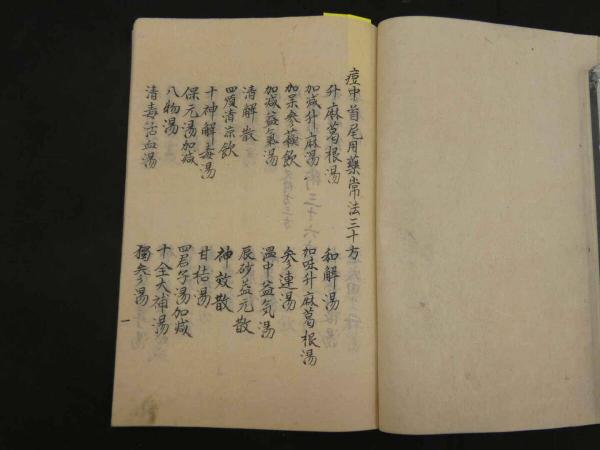 痘中首尾用藥常法三十方
升麻葛根湯
和解湯
加減升麻湯
加味升麻葛根湯
加呆參蘇飲
參連湯
加減益氣湯
溫中益気湯
清解散
辰砂益元散
四順清凉飲
神效散
十神解毒湯
甘桔湯
保元湯加减
四君子湯加减
八物湯
十全大補湯
清毒活血湯
獨參湯
一